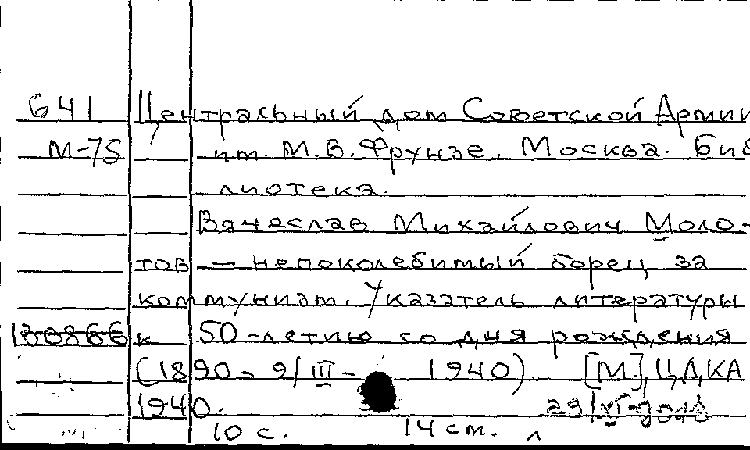 641 Центральный дом Советской Армии
М-75 им М.В.Фрунзе. Москва. Биб
лиотека.
Вячеслав Михайлович Моло-
тов — непоколебимый борец за
коммунизм. Указатель литературы
130866 к 50-летию со дня рождения
(1890 - 9/III - 1940) [М], ЦДКА
1940.
10 с. 14 см.